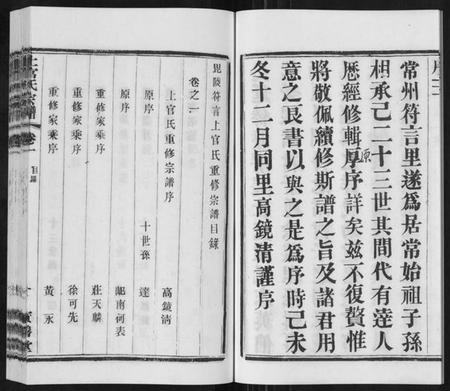 序二
常州符言里遂爲居常始祖子孫
相承已二十三世其間代有達人
歷經修輯厚序詳矣兹不復贅惟
原
將敬佩續修斯譜之旨及諸君用
意之艮書以與之是爲序時己未
冬十二月同里高鏡清謹序
毘陵符言上官氏重修宗譜目錄
卷之一
上官氏重修宗譜序 高鏡清
原序 十世孫 達
原序 鄙南何表
重修家乘序 莊天麟
重修家乘序 徐可先
重修家乘序 黃永
上官氏宗譜 卷一 目錄